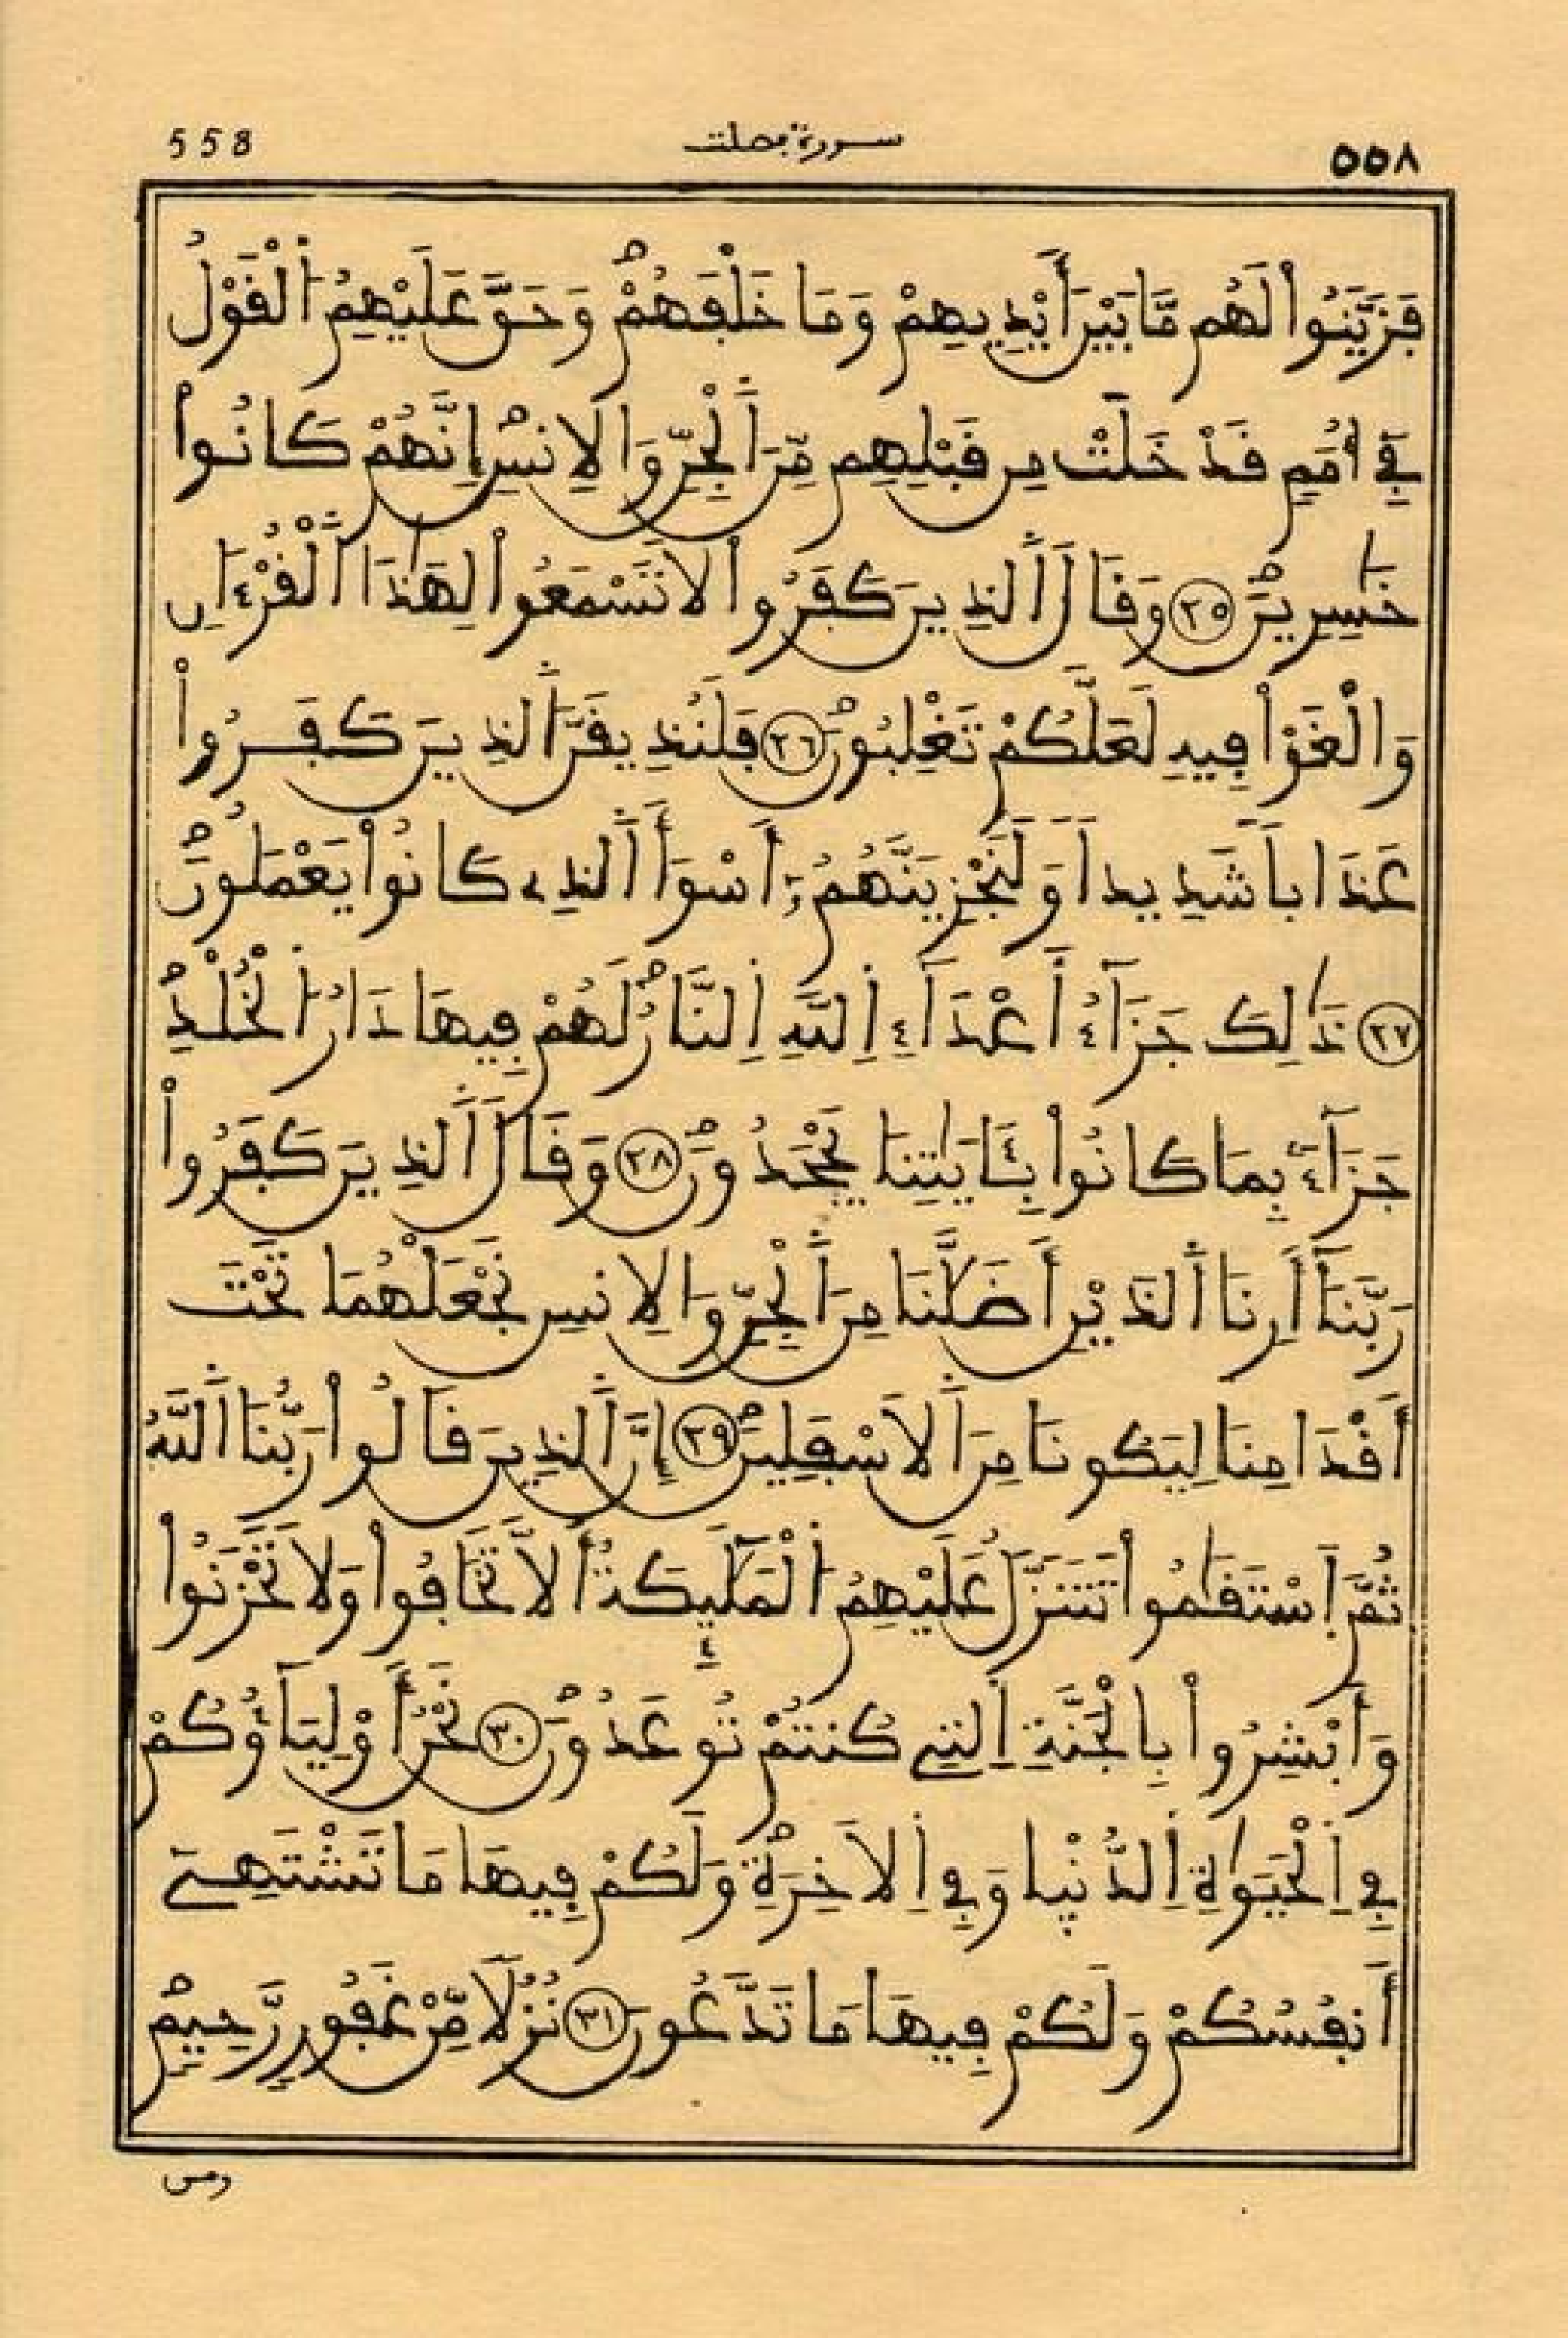 558 سورة فصلت ٥٥٨
فَزَيَّنُواْ لَهُم مَّا بَيْنَ أَيْدِيهِمْ وَمَا خَلْفَهُمْ وَحَقَّ عَلَيْهِمُ الْقَوْلُ
فِي أُمَمٍ قَدْ خَلَتْ مِن قَبْلِهِم مِّنَ الْجِنِّ وَالِانسِ إِنَّهُمْ كَانُواْ
خَٰسِرِينَ ٢٥ وَقَالَ الذِينَ كَفَرُواْ لَا تَسْمَعُواْ لِهَٰذَا الْقُرْءَانِ
وَالْغَوْاْ فِيهِ لَعَلَّكُمْ تَغْلِبُونَ ٢٦ فَلَنُذِيقَنَّ الذِينَ كَفَرُواْ
عَذَاباً شَدِيداً وَلَنَجْزِيَنَّهُمُۥ أَسْوَأَ الذِے كَانُواْ يَعْمَلُونَ
٢٧ ذَٰلِكَ جَزَآءُ أَعْدَآءِ اللَّهِ النَّارُ لَهُمْ فِيهَا دَارُ الْخُلْدِ
جَزَآءَۢ بِمَا كَانُواْ بِـَٔايَٰتِنَا يَجْحَدُونَ ٢٨ وَقَالَ الذِينَ كَفَرُواْ
رَبَّنَا أَرِنَا الذَيْنِ أَضَلَّٰنَا مِنَ الْجِنِّ وَالِانسِ نَجْعَلْهُمَا تَحْتَ
أَقْدَامِنَا لِيَكُونَا مِنَ الَاسْفَلِينَ ٢٩ إِنَّ الذِينَ قَالُواْ رَبُّنَا اللَّهُ
ثُمَّ اَسْتَقَٰمُواْ تَتَنَزَّلُ عَلَيْهِمُ الْمَلَٰٓئِكَةُ أَلَّا تَخَافُواْ وَلَا تَحْزَنُواْ
وَأَبْشِرُواْ بِالْجَنَّةِ التِے كُنتُمْ تُوعَدُونَ ٣٠ نَحْنُ أَوْلِيَآؤُكُمْ
فِي الْحَيَوٰةِ الدُّنْيا وَفِي الَاخِرَةِ وَلَكُمْ فِيهَا مَا تَشْتَهِےٓ
أَنفُسُكُمْ وَلَكُمْ فِيهَا مَا تَدَّعُونَ ٣١ نُزُلًا مِّنْ غَفُورٍ رَّحِيمٍ
ومن